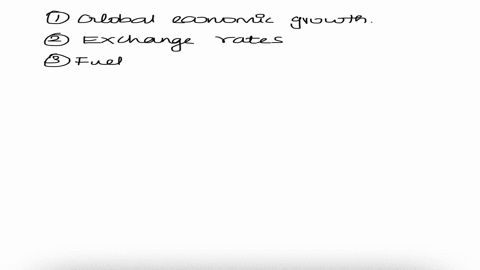 ① Global economic growth.
② Exchange rates
③ Fuel